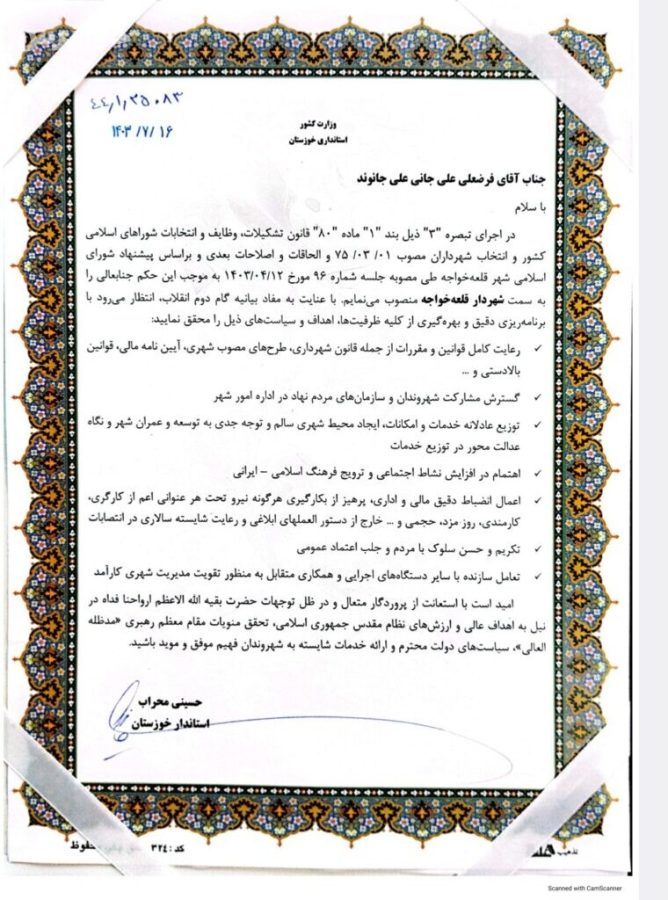 ۴۴,۱,۳۵۰۸۳
۱۴۰۳ /۷/ ۱۶
وزارت کشور
استانداری خوزستان
جناب آقای فرضعلی علی جانی علی جانوند
با سلام
در اجرای تبصره "۳" ذیل بند "۱" ماده "۸۰" قانون تشکیلات، وظایف و انتخابات شوراهای اسلامی
کشور و انتخاب شهرداران مصوب ۰۱/ ۰۳/ ۷۵ و الحاقات و اصلاحات بعدی و براساس پیشنهاد شورای
اسلامی شهر قلعه‌خواجه طی مصوبه جلسه شماره ۹۶ مورخ ۱۴۰۳/۰۴/۱۲ به موجب این حکم جنابعالی را
به سمت شهردار قلعه‌خواجه منصوب می‌نمایم. با عنایت به مفاد بیانیه گام دوم انقلاب، انتظار می‌رود با
برنامه‌ریزی دقیق و بهره‌گیری از کلیه ظرفیت‌ها، اهداف و سیاست‌های ذیل را محقق نمایید:
✓ رعایت کامل قوانین و مقررات از جمله قانون شهرداری، طرح‌های مصوب شهری، آیین نامه مالی، قوانین
بالادستی و ...
✓ گسترش مشارکت شهروندان و سازمان‌های مردم نهاد در اداره امور شهر
✓ توزیع عادلانه خدمات و امکانات، ایجاد محیط شهری سالم و توجه جدی به توسعه و عمران شهر و نگاه
عدالت محور در توزیع خدمات
✓ اهتمام در افزایش نشاط اجتماعی و ترویج فرهنگ اسلامی – ایرانی
✓ اعمال انضباط دقیق مالی و اداری، پرهیز از بکارگیری هرگونه نیرو تحت هر عنوانی اعم از کارگری،
کارمندی، روز مزد، حجمی و ... خارج از دستور العملهای ابلاغی و رعایت شایسته سالاری در انتصابات
✓ تکریم و حسن سلوک با مردم و جلب اعتماد عمومی
✓ تعامل سازنده با سایر دستگاه‌های اجرایی و همکاری متقابل به منظور تقویت مدیریت شهری کارآمد
امید است با استعانت از پروردگار متعال و در ظل توجهات حضرت بقیه الله الاعظم ارواحنا فداه در
نیل به اهداف عالی و ارزش‌های نظام مقدس جمهوری اسلامی، تحقق منویات مقام معظم رهبری «مدظله
العالی»، سیاست‌های دولت محترم و ارائه خدمات شایسته به شهروندان فهیم موفق و موید باشید.
حسینی محراب
استاندار خوزستان
تذهیب
کد : ۳۲۴
محفوظ
Scanned with CamScanner